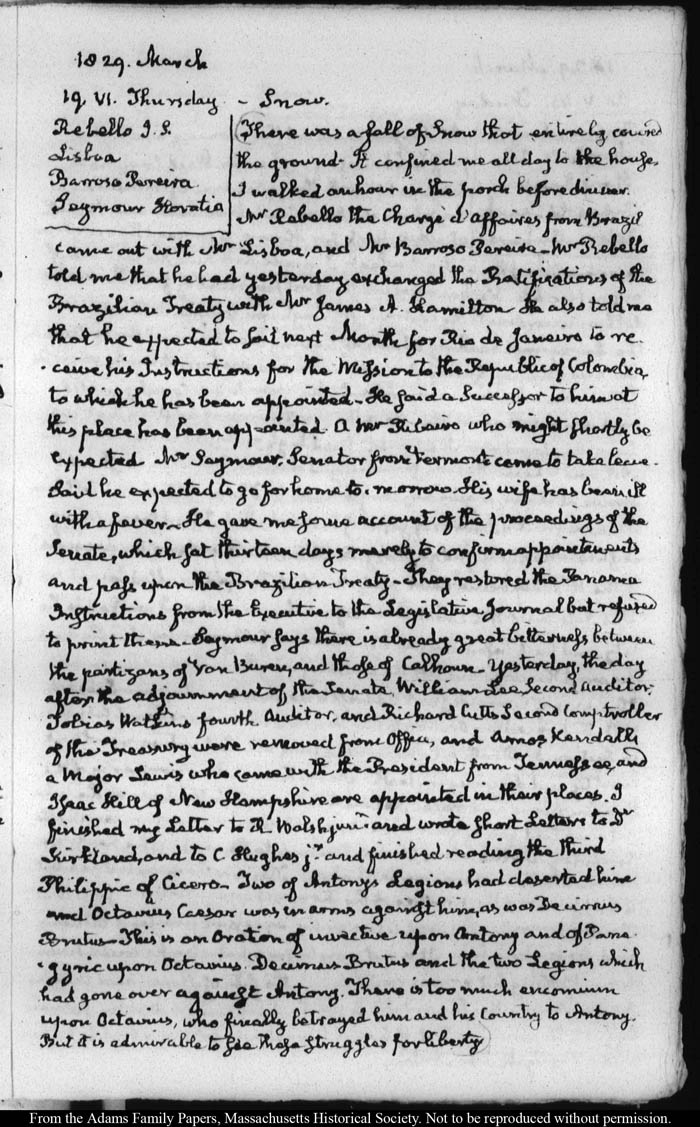 1829. March
19 VI. Thursday – Snow.
Rebello J. S.
Lisboa
Barroso Pereira
Seymour Horatio
There was a fall of Snow that entirely covered
the ground. It confined me all day to the house,
I walked an hour in the porch before dinner.
Mr Rebello the Chargé d'affaires from Brazil
came out with Mr Lisboa, and Mr Barroso Pereira – Mr Rebello
told me that he had yesterday exchanged the Ratifications of the
Brazilian Treaty with Mr James A. Hamilton He also told me
that he expected to sail next Month for Rio de Janeiro to re-
-ceive his Instructions for the Mission to the Republic of Colombia,
to which he has been appointed – He said a Successor to him at
this place has been appointed. A Mr Ribeiro who might shortly be
expected Mr Seymour, Senator from Vermont came to take leave.
Said he expected to go for home to-morrow His wife has been ill
with a fever – He gave me some account of the proceedings of the
Senate, which sat thirteen days merely to confirm appointments
and pass upon the Brazilian Treaty – They restored the Panama
Instructions from the Executive to the Legislative Journal but refused
to print them – Seymour says there is already great bitterness between
the partizans of Van Buren, and those of Calhoun – Yesterday, the day
after the adjournment of the Senate, William Lee Second Auditor,
Tobias Watkins fourth Auditor, and Richard Cutts Second Comptroller
of the Treasury were removed from Office, and Amos Kendall,
a Major Lewis who came with the President from Tennessee, and
Isaac Hill of New Hampshire are appointed in their places. I
finished my Letter to R. Walsh junr and wrote short Letters to Dr
Kirkland, and to C. Hughes jr and finished reading the third
Philippic of Cicero – Two of Antony's Legions had deserted him
and Octavius Caesar was in arms against him, as was Decimus
Brutus – This is an Oration of invective upon Antony and of Pane-
-gyric upon Octavius. Decimus Brutus and the two Legions which
had gone over against Antony. There is too much encomium
upon Octavius, who finally betrayed him and his Country to Antony.
But it is admirable to see these struggles for liberty
From the Adams Family Papers, Massachusetts Historical Society. Not to be reproduced without permission.